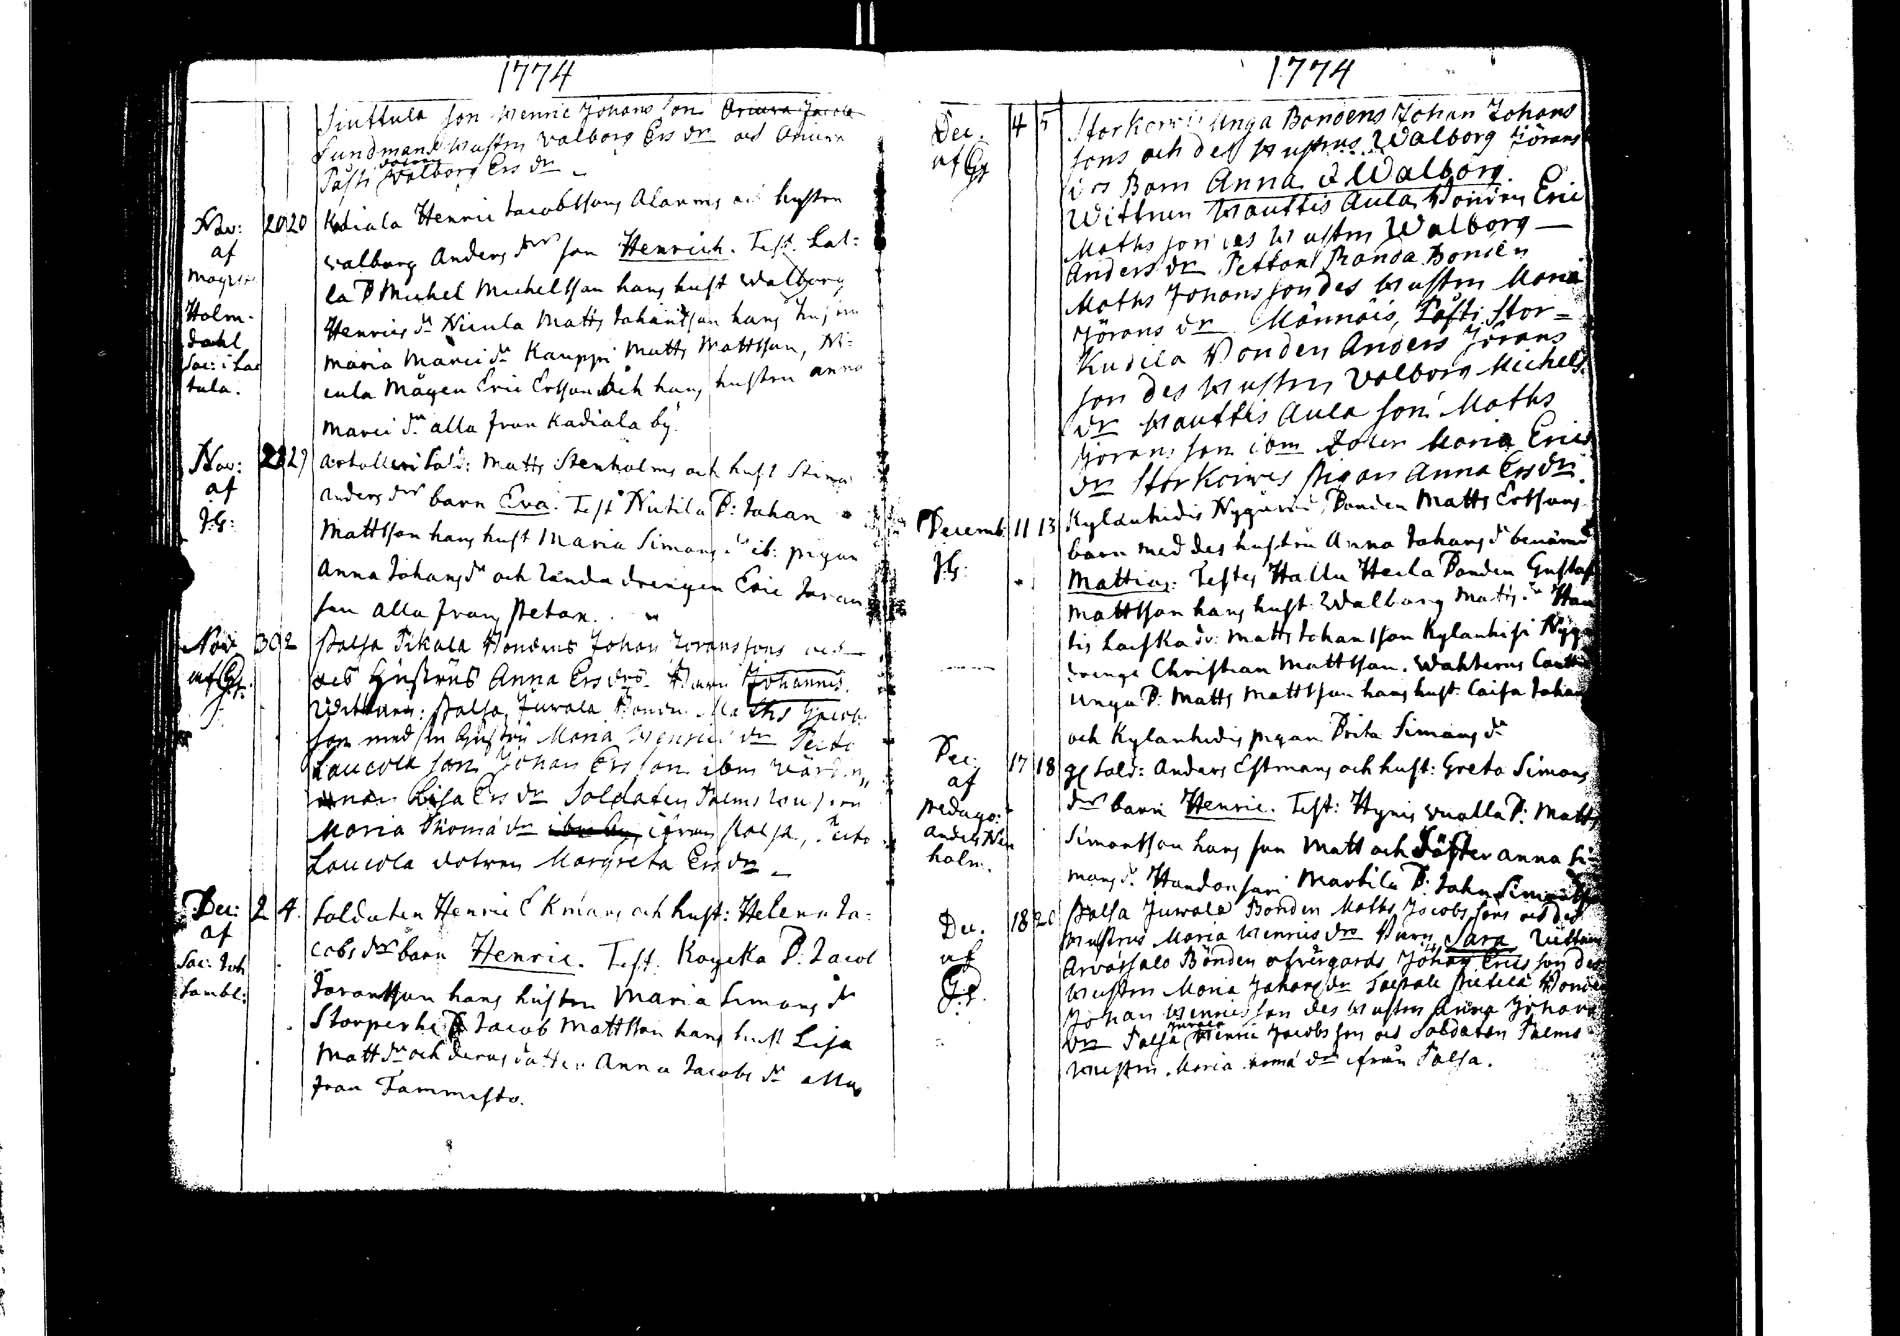 1774
Siuttula son Henric Johans son Ariura Jacob
Sundmans hustru Valborg Ers dr och Ariura
Påsti Valborg Ers dr
Nov: 20 20 Kadiala Henric Jacobssons Alarms och hustru
af Valborg Anders drs son Henrich. Test. Lal:
Magist: la B Michel Michelsson hans hust Walborg
Holm- Henrics dr Nicula Matts Johansson hans hustru
dahl Maria Marci dr Kauppi Matts Mattsson, Ni:
Sac: i Lae cula Mågen Eric Ersson och hans hustru Anna
tula. Marci dr alla från Kadiala by.
Nov: 28 29 Artolleri Sold: Matts Stenholms och hust Stina
af Anders drs barn Eva. Test Nutila B: Johan
J.G: Mattsson hans hust Maria Simons dr ib: pigan
Anna Johans dr och Landa drengen Eric Joran
son alla från Petar.
Nov 30 2 Palsa Pikala Bondens Johan Joranssons och
af Gs. des Hustrus Anna Ers drs Barn Johannes.
Wittnen: Palsa Juvala Bonden Maths Jacobs
son med sin hustru Maria Henrics dr Perto
Laucola son Johan Ers son ibm Värden
Lisa Ers dr Soldaten Palms hustru
Maria Thomæ dr ibm ifrån Palsa, Perto
Laucola dotren Margreta Ers dr
Dec: 2 4. Soldaten Henric Ekmans och hust: Helena Ja:
af cobs drs barn Henric. Test. Koyeka B. Jacob
Sac: Joh Joransson hans hustru Maria Simons dr
Sambl: Storperhe B Jacob Mattsson hans hust Lisa
Matts dr och deras dotter Anna Jacobs dr alla
från Tammisto.
1774
Dec. 4 5 Storkoives unga Bondens Johan Johans
af Gs sons och des Hustrus Walborg Jörans
drs Barn Anna & Walborg.
Wittnen Hauttis Aula Bonden Eric
Maths son des Hustru Walborg
Anders dr Pettars Randa Bonden
Maths Johans son des Hustru Maria
Jörans dr Männäis, Påsti Stor=
Kudila Bonden Anders Jörans
son des Hustru Valborg Michels
dr Hauttis Aula son Maths
Jörans son ibm Doter Maria Erics
dr Storkoives pigan Anna Ers dr.
Decemb 11 13 Kylänhidis Nygårds Bonden Matts Ersons
J.G: barn med des hustru Anna Johans dr benämd
Mattias. Testes Halla Heila Bonden Gustaf
Mattsson hans hust Walborg Matts dr Hau
tis Laiska dr: Matts Johansson Kylänhisi Nygå
drenge Christian Mattsson. Wahterus Cautti
unga B: Matts Mattsson hans hust: Caisa Johan
och Kylänhidis pigan Brita Simons dr
Dec: 17 18 gl Sold: Anders Estmans och hust: Greta Simons
af drs barn Henric. Test: Hynis Vualla B: Matts
Pedago: Simonsson hans son Matt och Dotter Anna Si-
Anders Nen mons dr. Haudonsari Martila B: Johan Simonsson
holm.
Dec. 18 20 Palsa Juvala Bonden Maths Jacobs sons och des
af Hustrus Maria Henrics drs Barn Sara Wittnen
Gs. Arvassalo Bonden öfvergårds Johan Erics son des
Hustru Maria Johans dr Salsalo Pietilä Bonden
Johan Henrics son des Hustru Anna Johans
dr Palsa Juvala Henric Jacobs son och Soldaten Palms
Hustru Maria Thomæ dr ifrån Palsa.